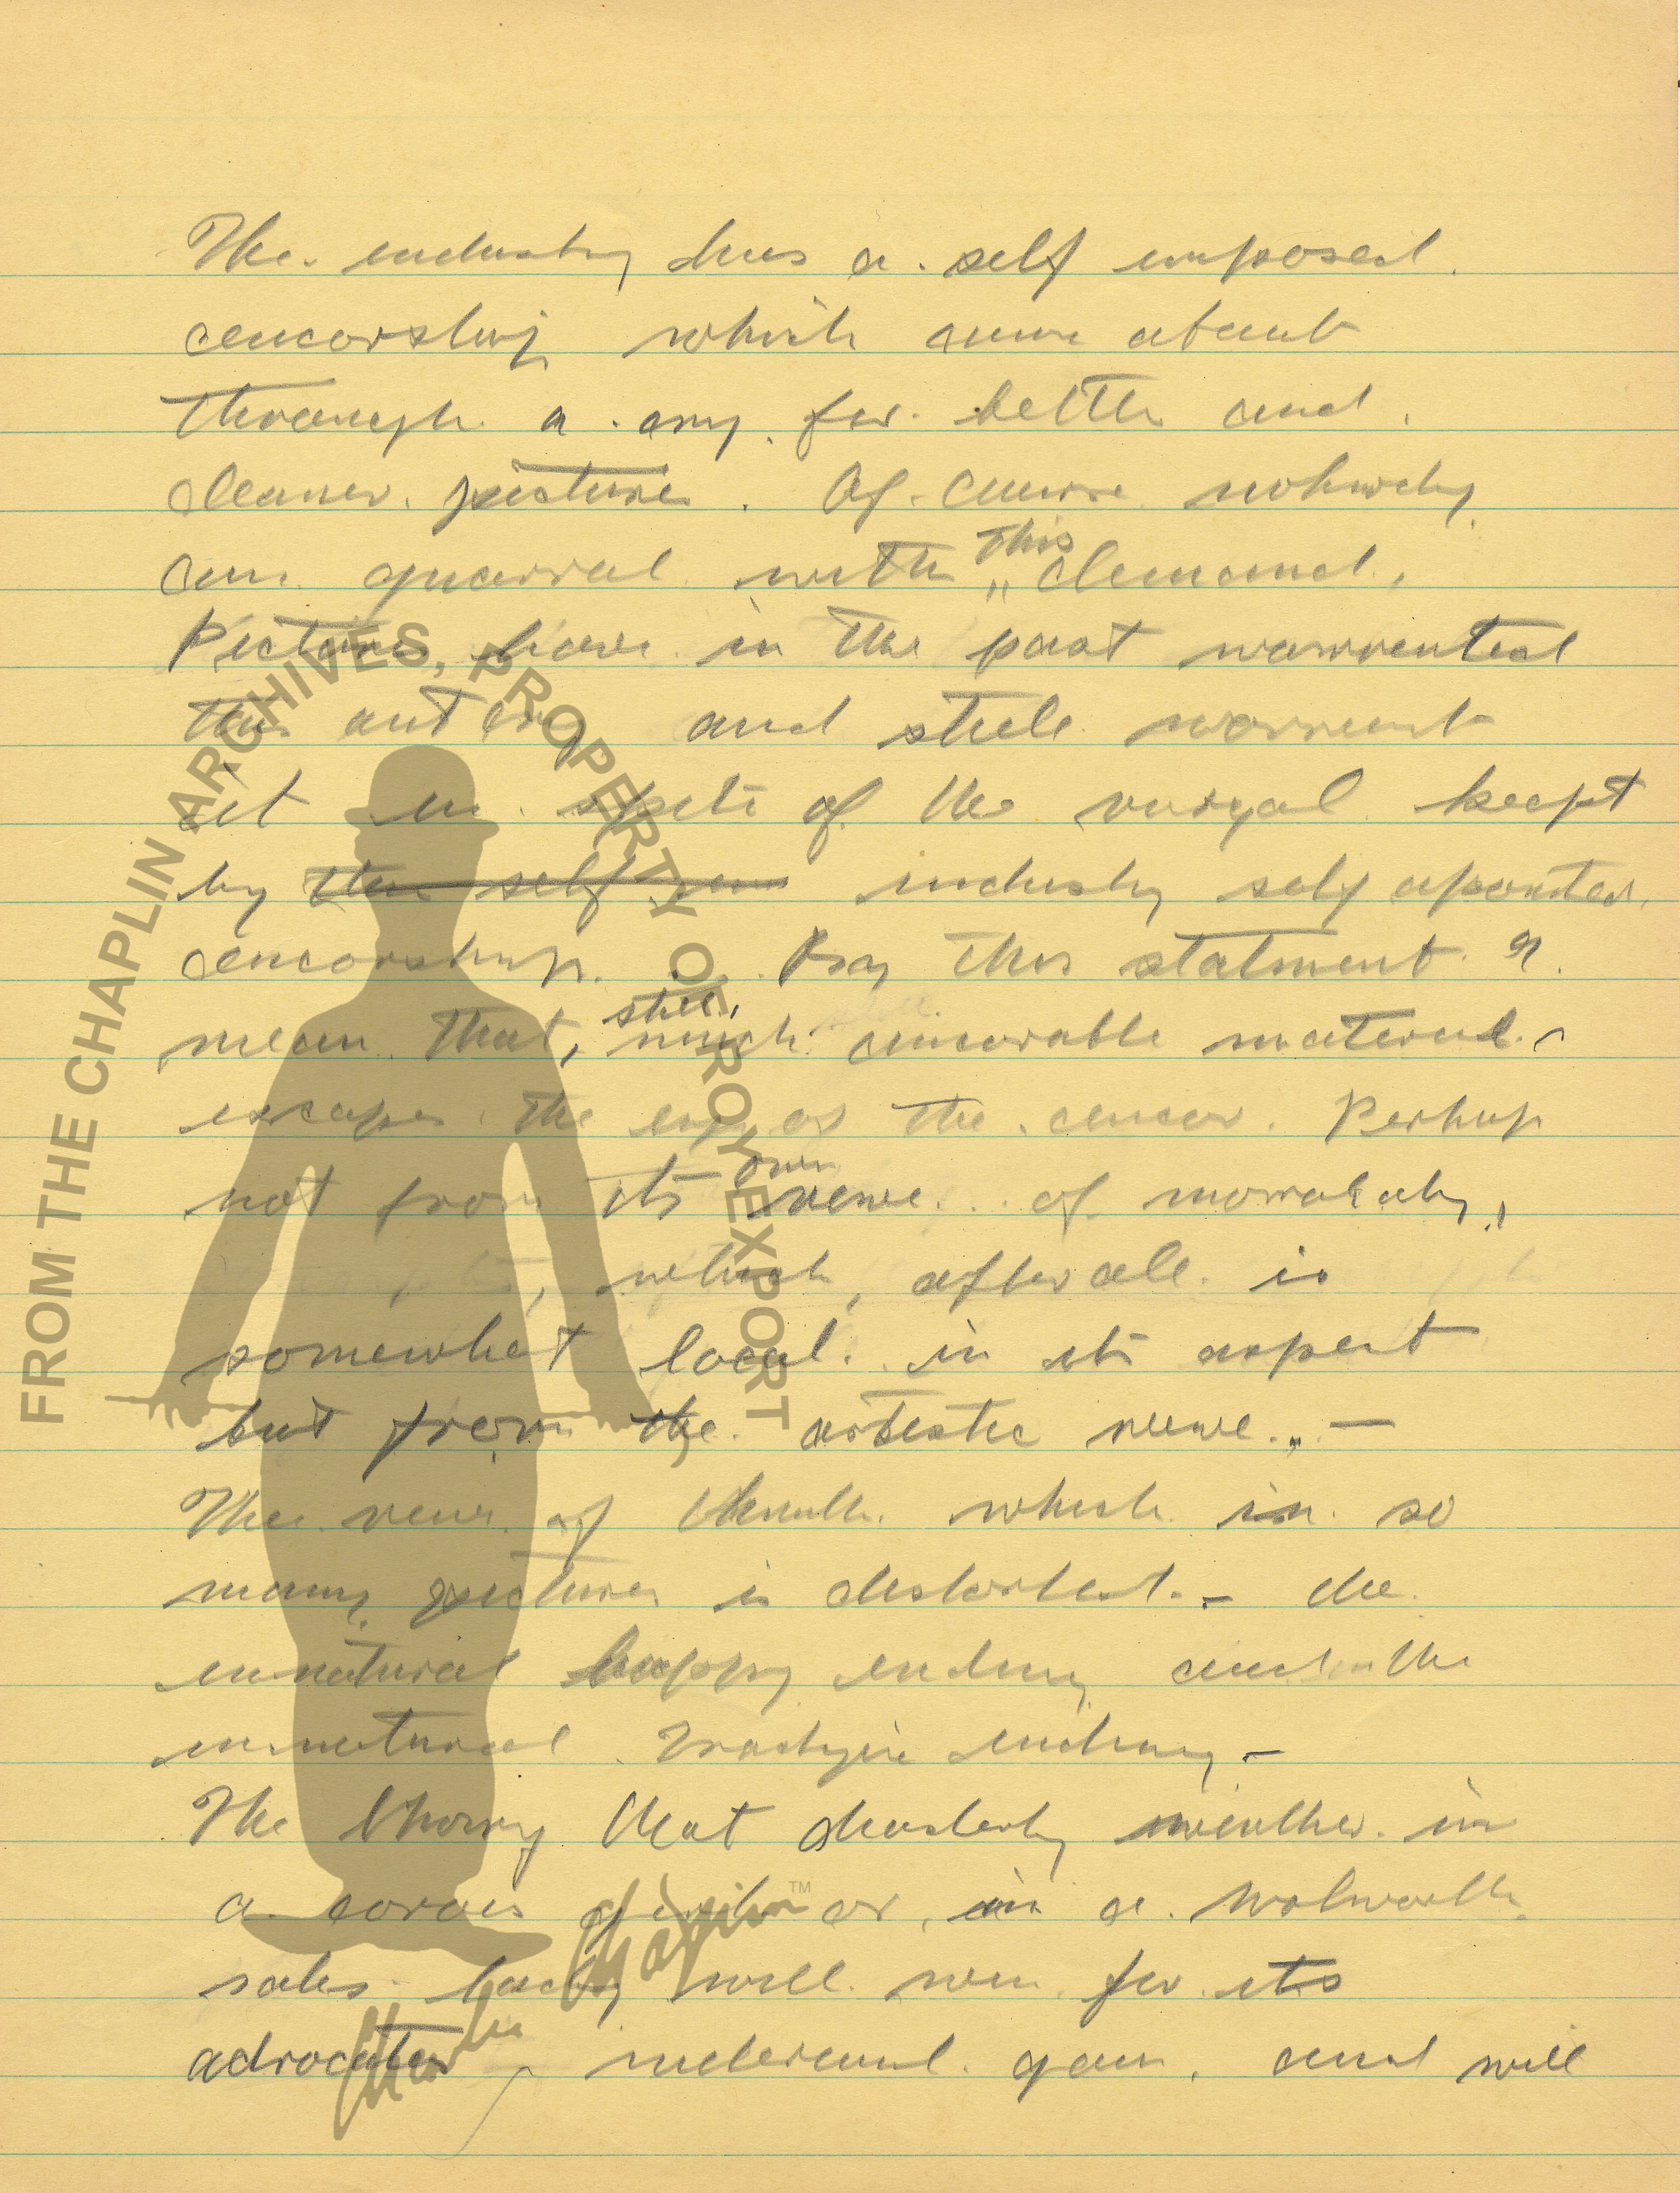 The industry has a self imposed
censorship which came about
through a cry for better and
cleaner pictures. Of course nobody
can quarral with this demand.
Pictures, have in the past warrented
this out cry and still warrent
it in spite of the keept
by this self industry self aponted
censorship. By this statment I
mean that, still, much censorable material
escapes the eye of the censor. Perhap
not from its own view of moralaty,
which, after all is
somewhat local in its aspect
but from the artistic view. —
The view of which in so
many pictures is distorted. — the
unnatural happy ending and the
unnatural ending —
The that whether in
a or in a Wolworth
sales lady will win for its
advocates, gain, and will
FROM THE CHAPLIN ARCHIVES, PROPERTY OF ROY EXPORT
Charlie Chaplin™